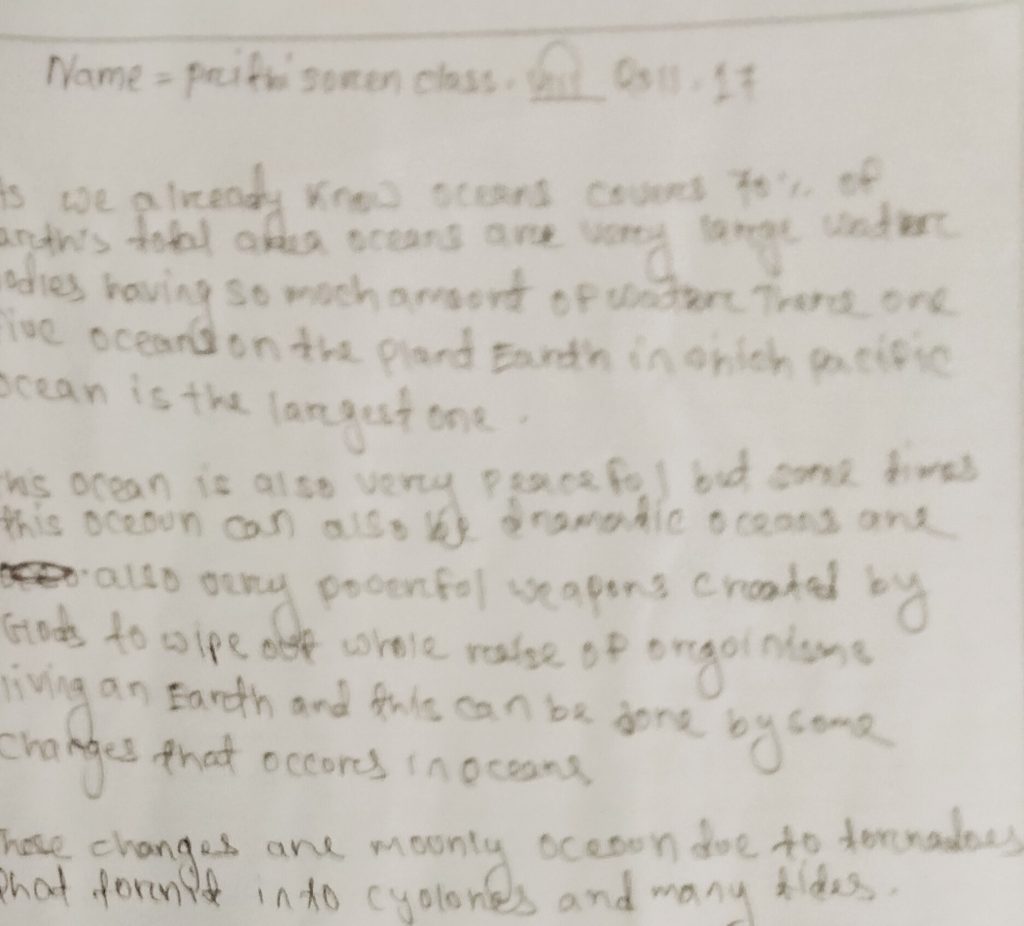 Name = prithi somen class. VIII Roll. 17
As we already know oceans coveres 70%. of
arth's total area oceans are very large water
odies having so moch amoont of water There are
five oceans on the planet Earth in which pacific
ocean is the largest one.
his ocean is also very peacefol but some times
this oceoun can also be dramadic oceans are
also very powerfol weapons created by
Gods to wipe out whole of
living an Earth and this can be done by some
changes that occores in oceans
These changes are moonly oceoun due to torenadoes
that into cyclones and many tides.